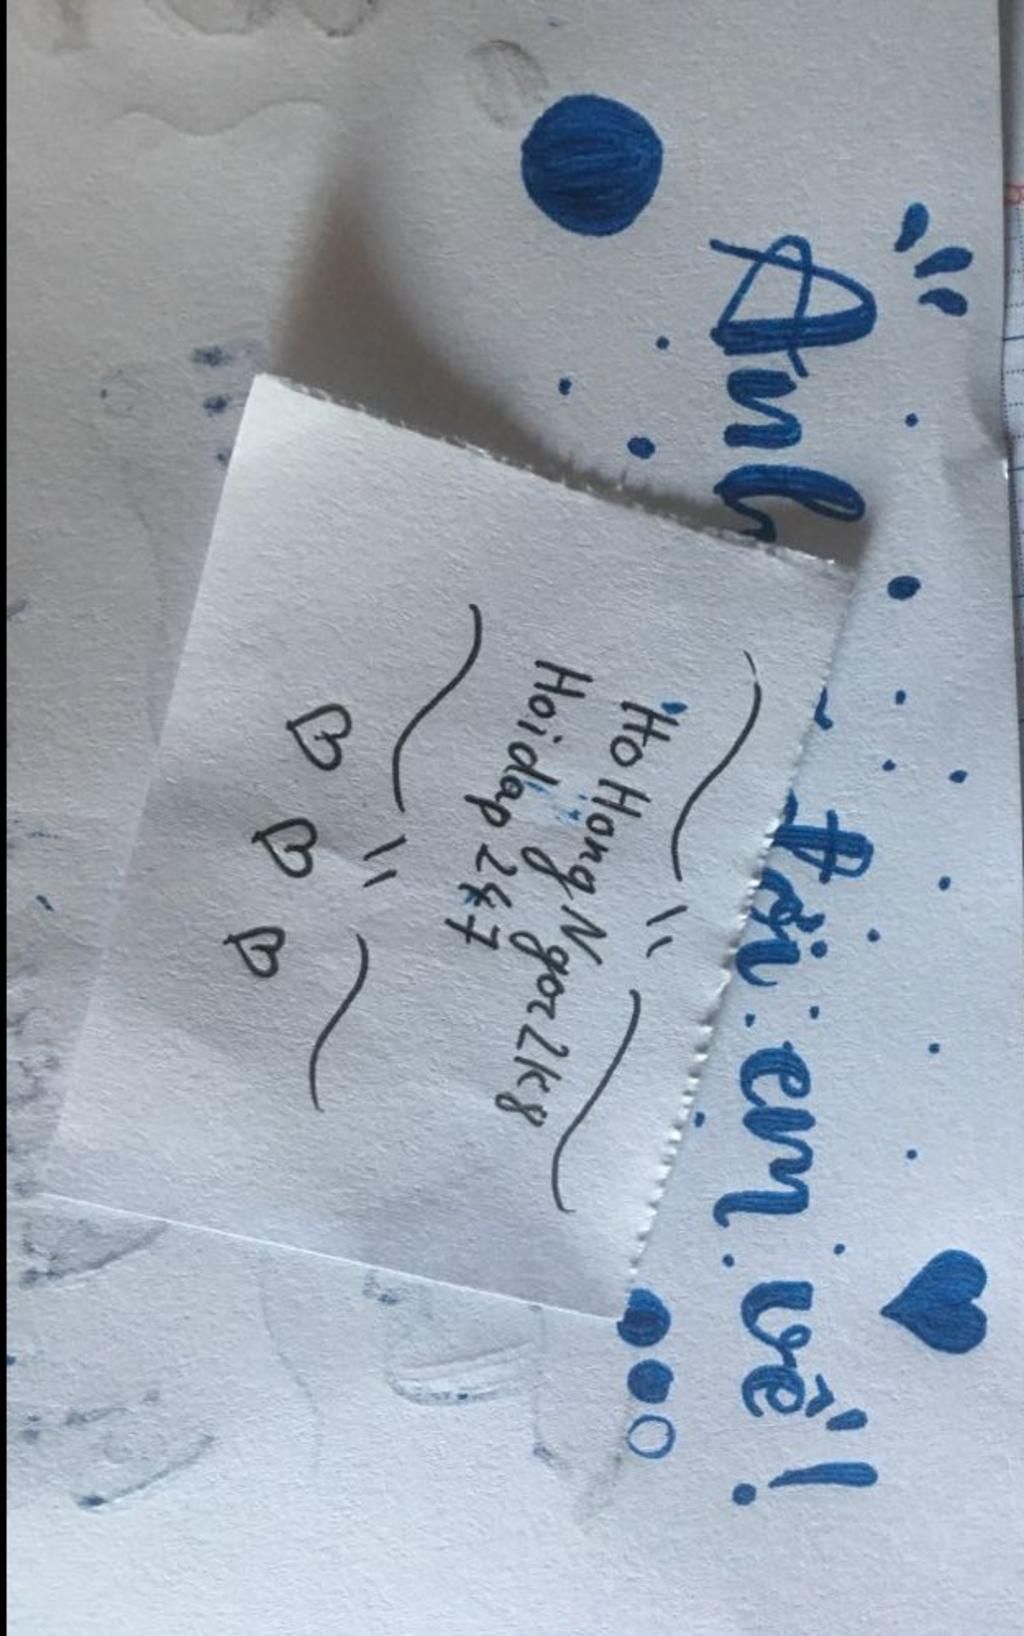 Anh tới em về!
HoHangNgoc2k8
Hoidap247